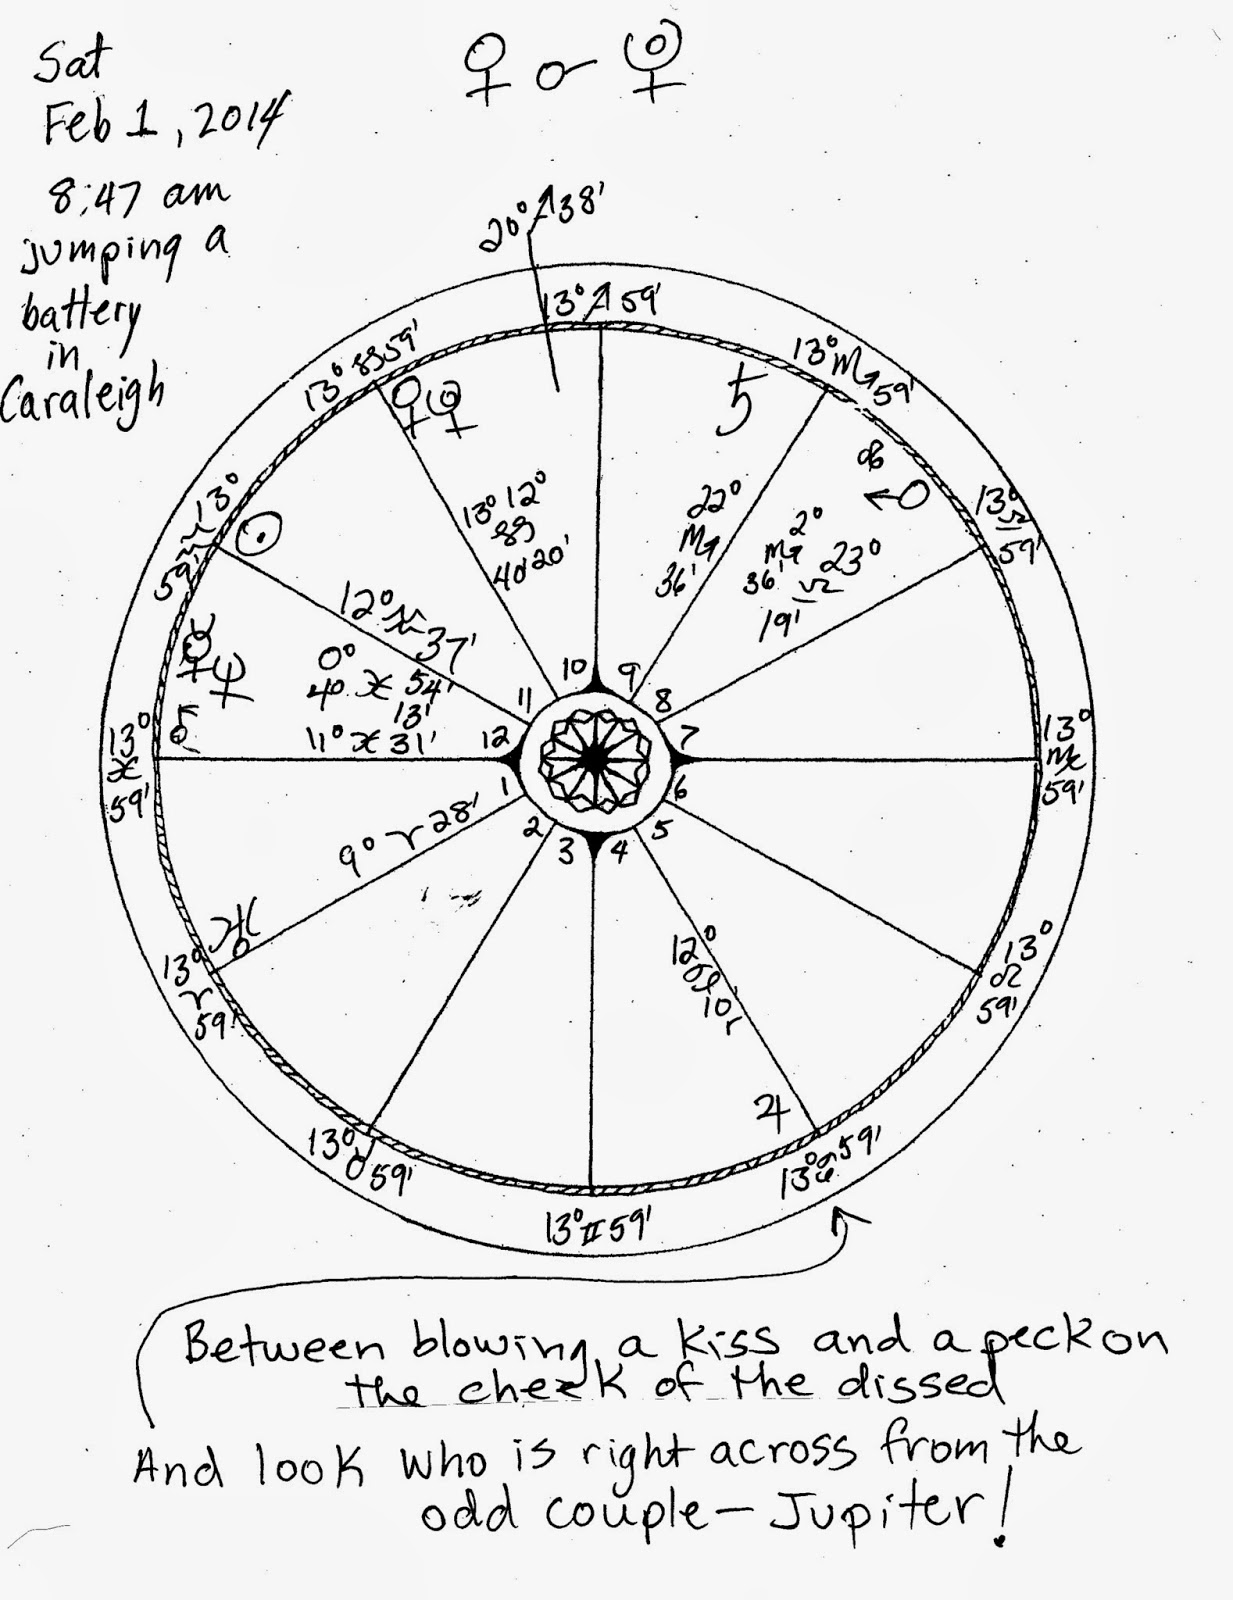 Sat
Feb 1, 2014
8:47 am
jumping a
battery
in
Caraleigh
♀ ☌
20° ♐ 38'
13° ♐ 59'
13° 59'
13° ♏ 59'
13°
59'
13° ♎ 59'
♄
♀
☉
13° 12°
40' 20'
22°
♏
36'
2°
♏
36'
23°
♎
19'
12° ♒ 37'
0°
4° ♓ 54'
13'
11° ♓ 31'
☿ ♆
13°
♓
59'
10 9
11 8
12 7
1 6
2 5
3 4
13°
♍
59'
9° ♈ 28'
♅
13°
♈
59'
12°
10'
♃
13°
♌
59'
13° ♉ 59'
13° ♊ 59'
13° ♋ 59'
Between blowing a kiss and a peck on
the cheek of the dissed
And look who is right across from the
odd couple — Jupiter!